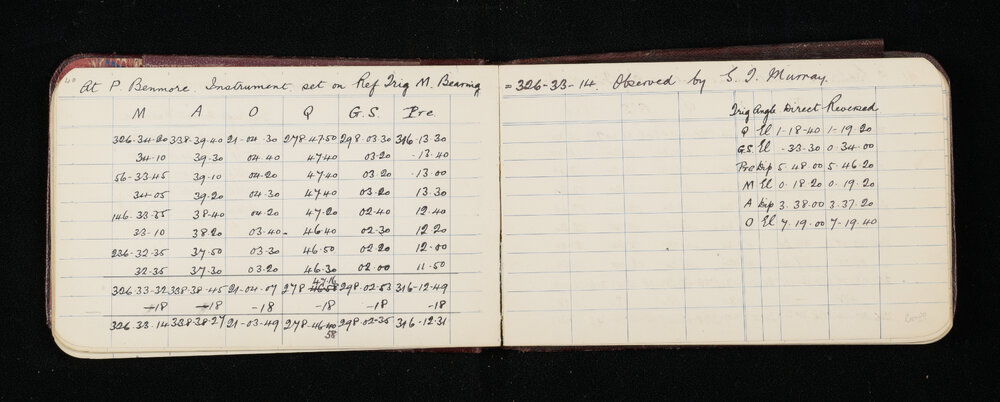 40
At P Benmore. Instrument set on Ref Trig M. Bearing = 326-33-14. Observed by S. J. Murray.
M A O Q G.S. Pre.
326-34-20 338-39-40 21-04-30 278 47 50 298-03-30 316-13-30
34-10 39-30 04-40 47 40 03-20 -13-40
56-33-45 39-10 04-20 47 40 03 20 -13-00
34-05 39-20 04-30 47 40 03-20 13-30
146-33-35 38-40 04-20 47-20 02-40 12-40
33-10 38 20 03-40 46 40 02-30 12 20
236-32-35 37-50 03-30 46-50 02-20 12-00
32-35 37-30 03-20 46-30 02-00 11-50
326 33-32 338-38-45 21-04-07 278 47-16 298-02-53 316-12-49
-18 -18 -18 -18 -18 -18
326-33-14 338-38-27 21-03-49 278-46-58 298-02-35 316-12-31
Trig Angle Direct Reversed
Q El 1-18-40 1-19-20
G.S. El -33-30 0-34-00
Pre Dip 5-48-00 5-46-20
M El 0-18-20 0-19-20
A Dip 3-38-00 3-37-20
O El 7-19-00 7-19-40